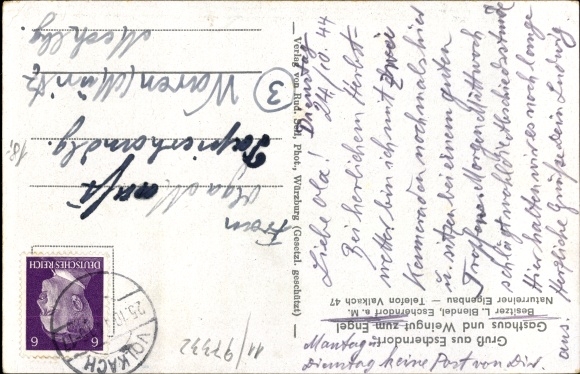 Gruß aus Escherndorf
Gasthaus und Weingut zum Engel
Besitzer L. Blendel, Escherndorf a. M.
Naturreiner Eigenbau — Telefon Volkach 47
Montag u.
Dienstag keine Post von Dir.
Dienstag
24./10.44
Liebe Ola!
Bei herrlichem Herbst-
wetter bin ich mit zwei
Kameraden nochmals hier
u. sitzen bei einem guten
Tropfen. Morgen Mittwoch
schlägt wohl die Abschiedsstunde
Hier halten wir es noch lange
aus! Herzliche Grüße Dein Ludwig
Verlag von Rud. Phot., Würzburg (Gesetzl. geschützt)
DEUTSCHES REICH
6 6
VOLKACH
25.10.
Frau
Olga
Papierhandlg.
3 Waren/Müritz
Mecklbg.
18,-
11/97332